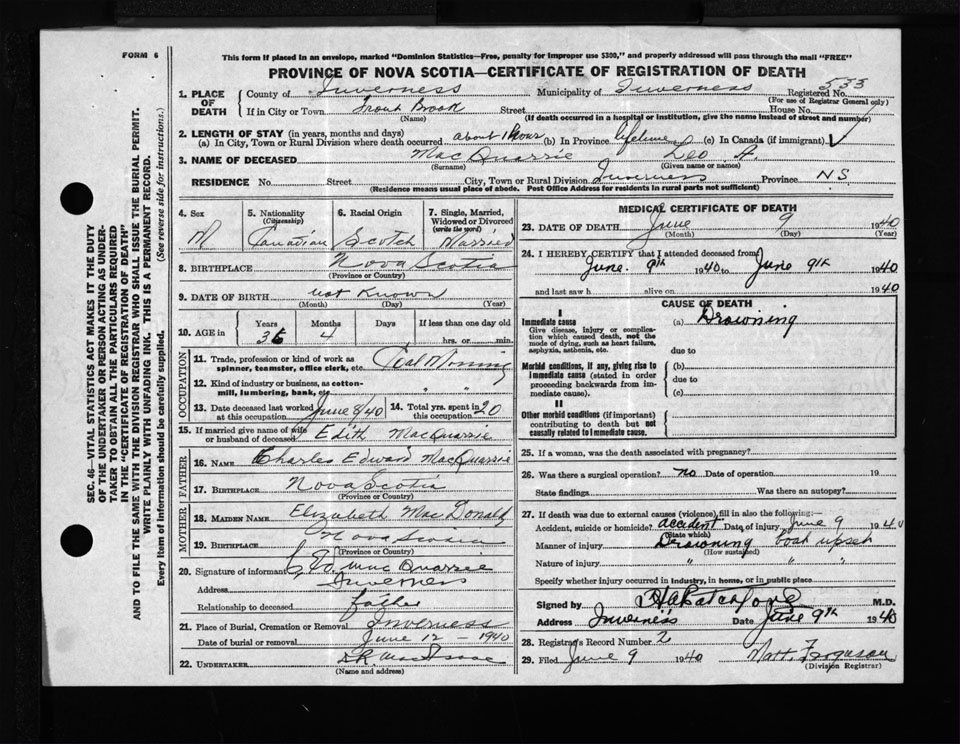 FORM 6
This form if placed in an envelope, marked "Dominion Statistics—Free, penalty for improper use $300," and properly addressed will pass through the mail "FREE"
PROVINCE OF NOVA SCOTIA—CERTIFICATE OF REGISTRATION OF DEATH
533
1. PLACE OF DEATH
County of Inverness Municipality of Inverness Registered No.
(For use of Registrar General only)
If in City or Town Trout Brook Street House No.
(Name) (If death occurred in a hospital or institution, give the name instead of street and number)
2. LENGTH OF STAY (in years, months and days)
(a) In City, Town or Rural Division where death occurred about 1 hour (b) In Province lifetime (c) In Canada (if immigrant)
3. NAME OF DECEASED MacQuarrie Leo A.
(Surname) (Given name or names)
RESIDENCE No. Street City, Town or Rural Division Inverness Province NS
(Residence means usual place of abode. Post Office Address for residents in rural parts not sufficient)
4. Sex M
5. Nationality (Citizenship) Canadian
6. Racial Origin Scotch
7. Single, Married, Widowed or Divorced (write the word) Married
8. BIRTHPLACE Nova Scotia
(Province or Country)
9. DATE OF BIRTH not Known
(Month) (Day) (Year)
10. AGE in
Years Months Days If less than one day old
4 hrs. or min.
OCCUPATION
11. Trade, profession or kind of work as spinner, teamster, office clerk, etc. Coal Mining
12. Kind of industry or business, as cotton-mill, lumbering, bank, etc. " "
13. Date deceased last worked at this occupation June 8/40
14. Total yrs. spent in this occupation 20
15. If married give name of wife or husband of deceased Edith MacQuarrie
FATHER
16. NAME Charles Edward MacQuarrie
17. BIRTHPLACE Nova Scotia
(Province or Country)
MOTHER
18. MAIDEN NAME Elizabeth MacDonald
19. BIRTHPLACE Nova Scotia
(Province or Country)
20. Signature of informant MacQuarrie
Address Inverness
Relationship to deceased father
21. Place of Burial, Cremation or Removal Inverness
Date of burial or removal June 12 - 1940
22. UNDERTAKER MacIsaac
(Name and address)
MEDICAL CERTIFICATE OF DEATH
23. DATE OF DEATH June 9 1940
(Month) (Day) (Year)
24. I HEREBY CERTIFY that I attended deceased from
June 9th 1940 to June 9th 1940
and last saw h alive on 1940
CAUSE OF DEATH
I
Immediate cause (a) Drowning
Give disease, injury or complication which caused death, not the mode of dying, such as heart failure, asphyxia, asthenia, etc.
due to
Morbid conditions, if any, giving rise to immediate cause (stated in order proceeding backwards from immediate cause).
(b)
due to
(c)
II
Other morbid conditions (if important) contributing to death but not causally related to immediate cause.
25. If a woman, was the death associated with pregnancy?
26. Was there a surgical operation? no Date of operation 19
State findings Was there an autopsy?
27. If death was due to external causes (violence), fill in also the following:—
Accident, suicide or homicide? accident Date of injury June 9 1940
(State which)
Manner of injury Drowning boat upset
(How sustained)
Nature of injury " " "
Specify whether injury occurred in industry, in home, or in public place
Signed by M.D.
Address Inverness Date June 9th 1940
28. Registrars Record Number 2
29. Filed June 9 1940 Matt. Ferguson
(Division Registrar)
SEC. 46—VITAL STATISTICS ACT MAKES IT THE DUTY
OF THE UNDERTAKER OR PERSON ACTING AS UNDER-
TAKER TO OBTAIN ALL THE PARTICULARS REQUIRED
IN THE "CERTIFICATE OF REGISTRATION OF DEATH"
AND TO FILE THE SAME WITH THE DIVISION REGISTRAR WHO SHALL ISSUE THE BURIAL PERMIT.
WRITE PLAINLY WITH UNFADING INK. THIS IS A PERMANENT RECORD.
Every item of information should be carefully supplied. (See reverse side for instructions.)